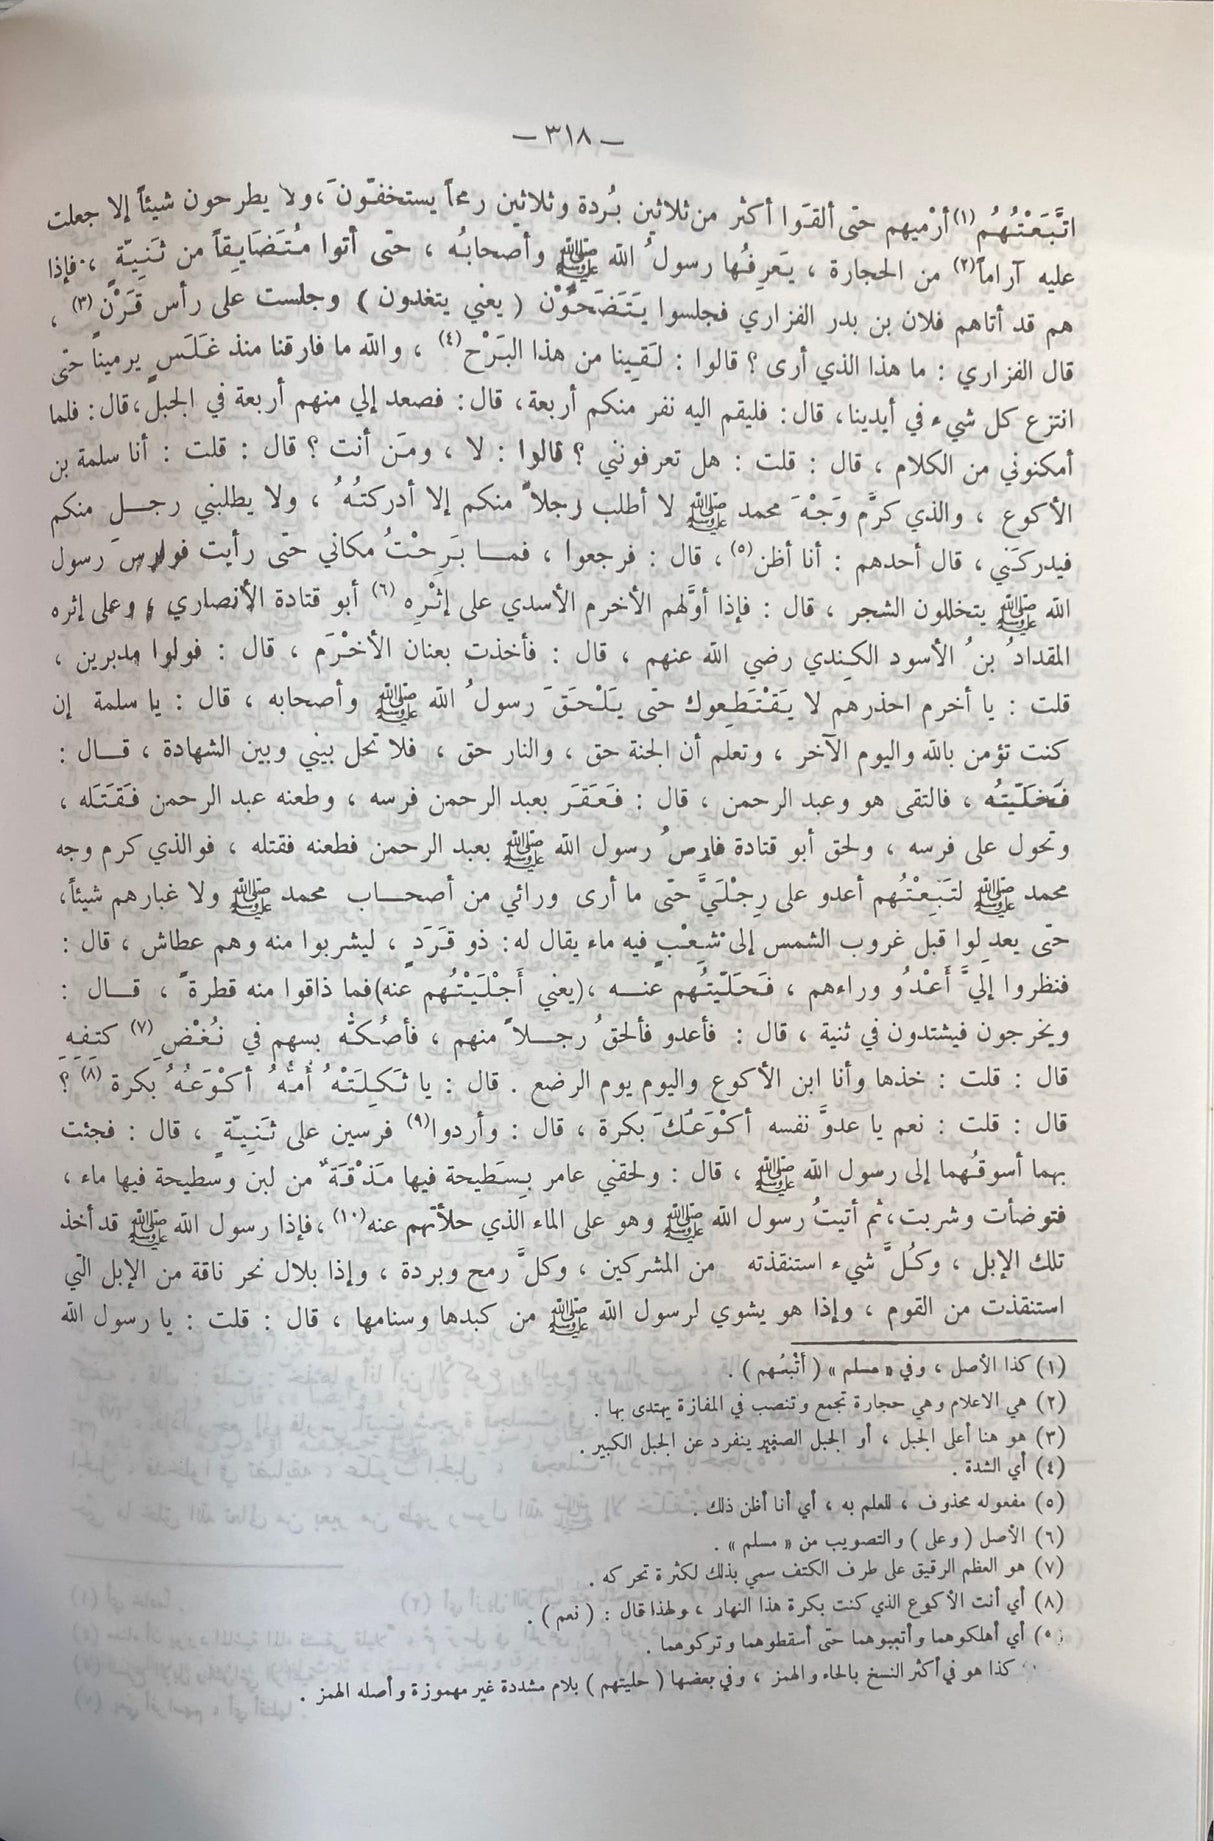 — ٣١٨ —
اتَّبَعْتُهُم(١) أرْميهم حتى ألقَوا أكثر من ثلاثين بُردة وثلاثين رمحاً يستخفّونَ ، ولا يطرحون شيئاً إلا جعلت
عليه آراماً(٢) من الحجارة ، يَعرِفُها رسولُ الله ﷺ وأصحابُه ، حتى أتوا مُتَضَايِقاً من ثَنِيّةٍ ، فإذا
هم قد أتاهم فلان بن بدر الفزاري فجلسوا يَتَضَحَّوْن ( يعني يتغدون ) وجلست على رأس قَرْن(٣) ،
قال الفزاري : ما هذا الذي أرى ؟ قالوا : لَقِينا من هذا البَرْح(٤) ، والله ما فارقنا منذ غَلَسٍ يرميناً حتى
انتزع كل شيء في أيدينا، قال : فليقم اليه نفر منكم أربعة، قال: فصعد إلي منهم أربعة في الجبل، قال: فلما
أمكنوني من الكلام ، قال : قلت : هل تعرفونني ؟ قالوا : لا ، ومَن أنت ؟ قال : قلت : أنا سلمة بن
الأكوع ، والذي كرَّم وَجْهَ محمد ﷺ لا أطلب رجلاً منكم إلا أدركتُهُ ، ولا يطلبني رجل منكم
فيدركَني ، قال أحدهم : أنا أظن(٥) ، قال : فرجعوا ، فما بَرِحْتُ مكاني حتى رأيت فوارسَ رسول
الله ﷺ يتخللون الشجر ، قال : فإذا أوَّلهم الأخرم الأسدي على إثْرِه (٦) أبو قتادة الأنصاري ، وعلى إثره
المقدادُ بنُ الأسود الكِندي رضي الله عنهم ، قال : فأخذت بعنان الأخْرَم ، قال : فولوا مدبرين ،
قلت : يا أخرم احذرهم لا يَقْتَطِعوك حتى يَلْحَقَ رسولُ الله ﷺ وأصحابه ، قال : يا سلمة إن
كنت تؤمن بالله واليوم الآخر ، وتعلم أن الجنة حق ، والنار حق ، فلا تحل بيني وبين الشهادة ، قال :
فَخَلّيتُه ، فالتقى هو وعبد الرحمن ، قال : فَعَقَرَ بعبد الرحمن فرسه ، وطعنه عبد الرحمن فَقَتَله ،
وتحول على فرسه ، ولحق أبو قتادة فارسُ رسول الله ﷺ بعبد الرحمن فطعنه فقتله ، فوالذي كرم وجه
محمد ﷺ لتَبِعْتُهم أعدو على رِجْلَيَّ حتى ما أرى ورائي من أصحاب محمد ﷺ ولا غبارهم شيئاً،
حتى يعدِلوا قبل غروب الشمس إلى شِعْبٍ فيه ماء يقال له: ذو قَرَدٍ ، ليشربوا منه وهم عطاش ، قال :
فنظروا إليَّ أعْدُو وراءهم ، فَحَلّيتُهم عنه ،(يعني أَجْلَيْتُهم عنه)فما ذاقوا منه قطرةً ، قال :
ويخرجون فيشتدون في ثنية ، قال : فأعدو فألحقُ رجلاً منهم ، فأصُكّه بسهم في نُغْضِ(٧) كتِفِهِ
قال : قلت : خذها وأنا ابن الأكوع واليوم يوم الرضع . قال : يا ثَكِلَتْهُ أُمُّهُ أكْوَعُهُ بكرة (٨) ؟
قال : قلت : نعم يا عدوَّ نفسه أكْوَعُكَ بكرة ، قال : وأردوا(٩) فرسين على ثَنِيّةٍ ، قال : فجئت
بهما أسوقُهما إلى رسول الله ﷺ ، قال : ولحقني عامر بِسَطيحة فيها مَذْقَةٌ من لبن وسطيحة فيها ماء ،
فتوضأت وشربت، ثم أتيتُ رسول الله ﷺ وهو على الماء الذي حلأتهم عنه(١٠) ، فإذا رسول الله ﷺ قد أخذ
تلك الإبل ، وكلَّ شيء استنقذته من المشركين ، وكلَّ رمح وبردة ، وإذا بلال نحر ناقة من الإبل التي
استنقذت من القوم ، وإذا هو يشوي لرسول الله ﷺ من كبدها وسنامها ، قال : قلت : يا رسول الله
(١) كذا الأصل ، وفي « مسلم » ( أتْبَعُهم ) .
(٢) هي الاعلام وهي حجارة تجمع وتنصب في المفازة يهتدى بها .
(٣) هو هنا أعلى الجبل ، أو الجبل الصغير ينفرد عن الجبل الكبير .
(٤) أي الشدة .
(٥) مفعوله محذوف ، للعلم به ، أي أنا أظن ذلك .
(٦) الأصل ( وعلى ) والتصويب من « مسلم » .
(٧) هو العظم الرقيق على طرف الكتف سمي بذلك لكثرة تحركه .
(٨) أي أنت الأكوع الذي كنت بكرة هذا النهار ، ولهذا قال : ( نعم ) .
أي أهلكوهما وأتعبوهما حتى أسقطوهما وتركوهما .
كذا هو في أكثر النسخ بالحاء والهمز ، وفي بعضها ( حليتهم ) بلام مشددة غير مهموزة وأصله الهمز .